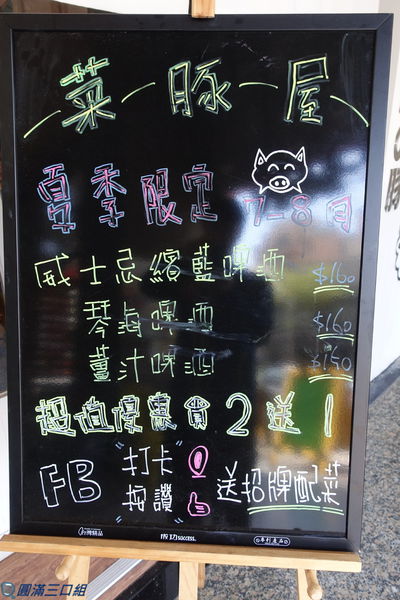 菜一豚一屋
夏季限定 7-8月
威士忌繽藍啤酒 $160
琴海啤酒 $160
薑汁啤酒 $150
超值優惠買2送1
FB "打卡" 送招牌配菜
按讚
成功 success.
圓滿三口組